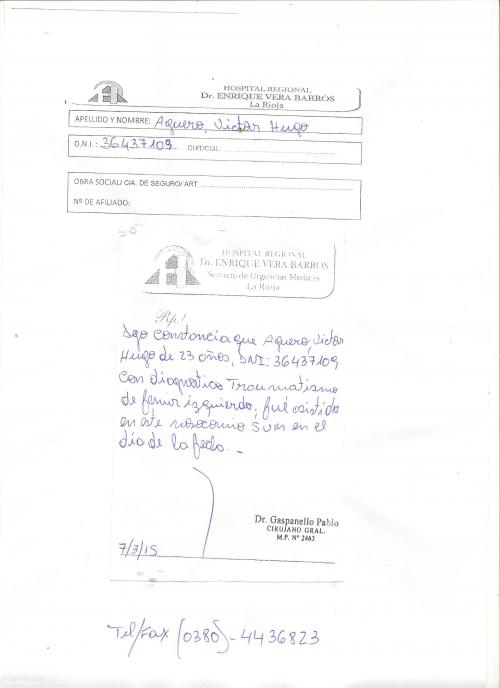 HOSPITAL REGIONAL
Dr. ENRIQUE VERA BARROS
La Rioja
APELLIDO Y NOMBRE: Aguero, Victor Hugo
D.N.I. : 36437109 CUIT/CUIL:
OBRA SOCIAL/ CIA. DE SEGURO/ ART:
Nº DE AFILIADO:
HOSPITAL REGIONAL
Dr. ENRIQUE VERA BARROS
Servicio de Urgencias Medicas
La Rioja
Rp.!
Dejo constancia que Aguero, Victor
Hugo de 23 años, DNI: 36437109
con diagnostico Traumatismo
de femur izquierdo; fué asistido
en este nosocomio SUM en el
día de la fecha. _
Dr. Gaspanello Pablo
CIRUJANO GRAL.
M.P. Nº 2463
7/3/15
Tel/Fax (0380)-4436823